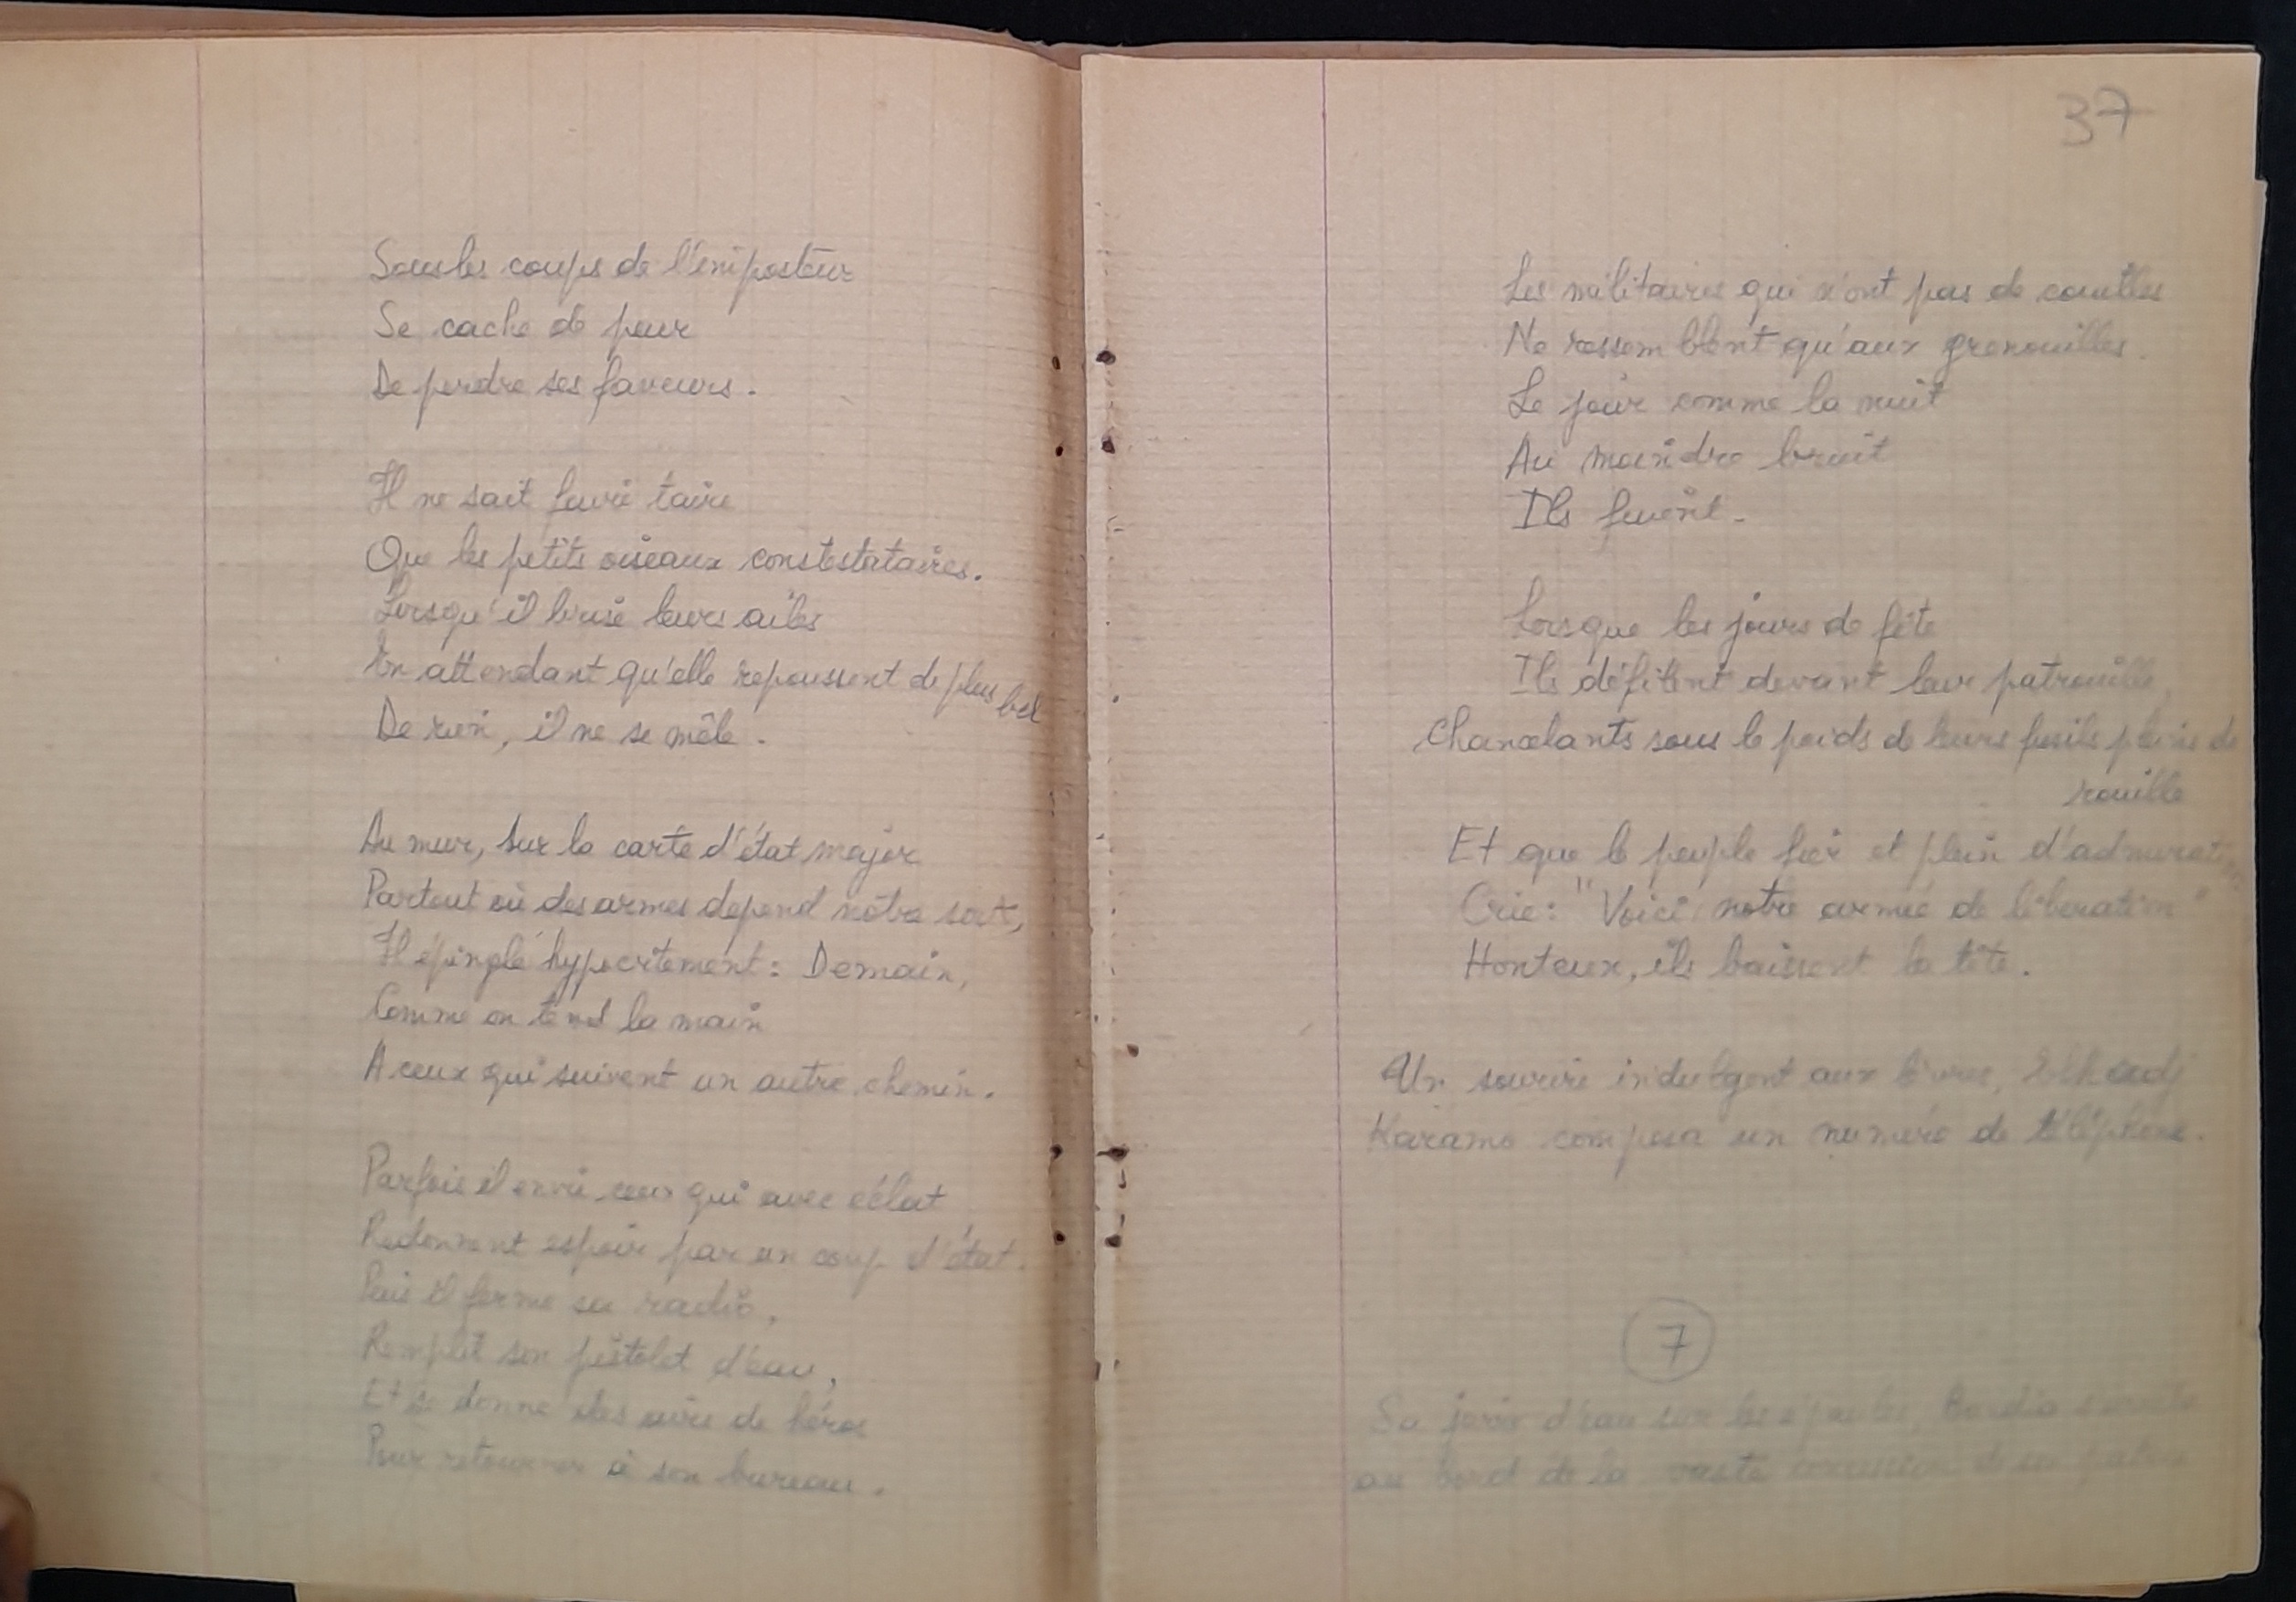 Sous les coups de l'imposteur
Se cache de peur
De perdre ses faveurs.
Il ne sait faire taire
Que les petits oiseaux constestataires.
Lorsqu'il brise leurs ailes
En attendant qu'elle repoussent de plus bel
De rien, il ne se mêle.
Au mur, sur la carte d'état major
Partout où des armes depend notre sort,
Il épingle hypocritement : Demain,
Comme on tend la main
A ceux qui suivent un autre chemin.
Parfois il envie ceux qui avec éclat
Redonnent espoir par un coup d'état.
Puis il ferme sa radio,
Remplit son pistolet d'eau,
Et se donne des airs de héros
Pour retourner à son bureau.
37
Les militaires qui n'ont pas de couilles
Ne ressemblent qu'aux grenouilles.
Le jour comme la nuit
Au moindre bruit
Ils fuient.
Lorsque les jours de fête
Ils défilent devant leur patrouille,
Chancelants sous le poids de leurs fusils pleins de
rouille
Et que le peuple fier et plein d'admiration
Crie : "Voici notre armée de libération"
Honteux, ils baissent la tête.
Un sourire indulgent aux lèvres, Elhadj
Karamo composa un numéro de téléphone.
7
Sa d'eau sur les épaules,
au bord de la vaste de